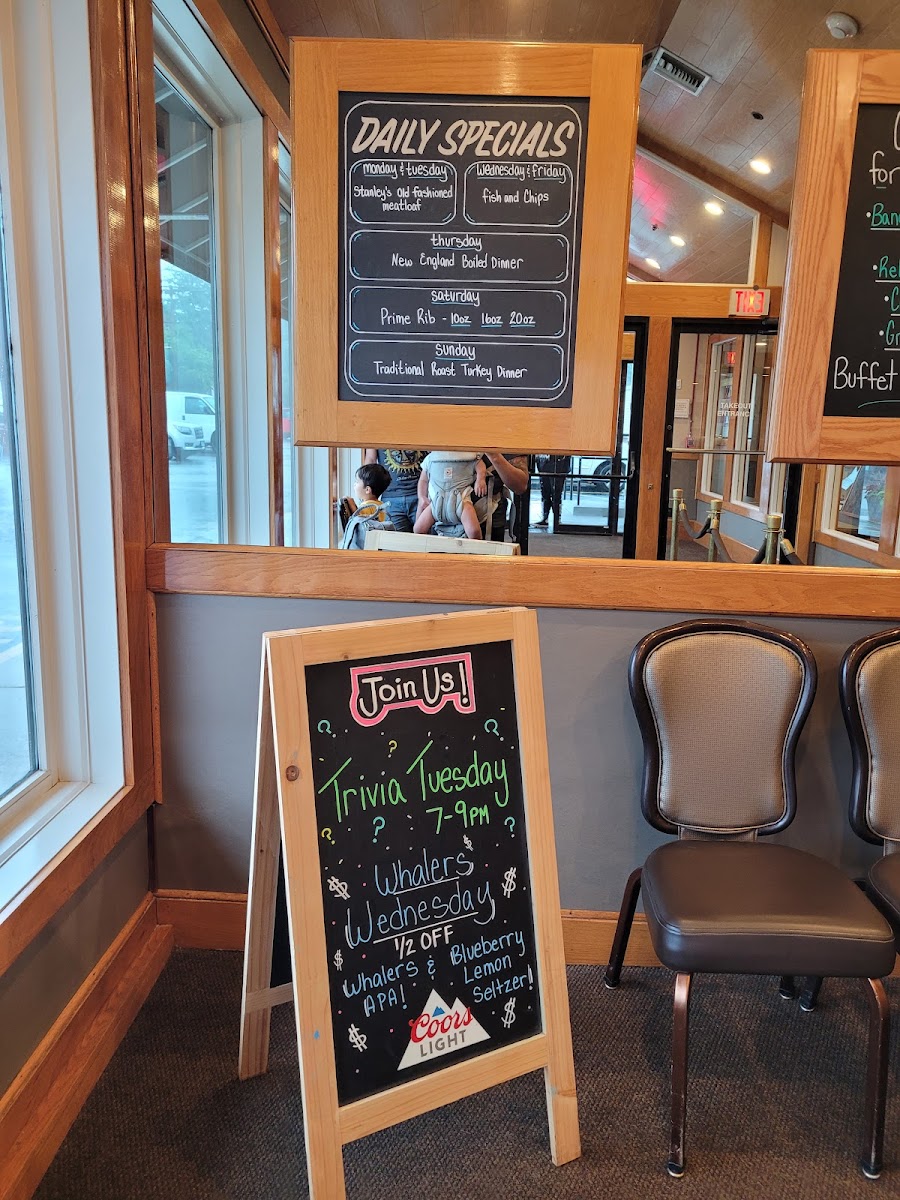 DAILY SPECIALS
monday & tuesday
Stanley's Old fashioned
meatloaf
Wednesday & friday
fish and Chips
thursday
New England Boiled Dinner
saturday
Prime Rib - 10oz 16oz 20oz
sunday
Traditional Roast Turkey Dinner
for
Buffet
EXIT
TAKEOUT
ENTRANCE
Join Us!
Trivia Tuesday
7-9PM
Whalers
Wednesday
1/2 OFF
Whalers &
APA!
Blueberry
Lemon
Seltzer!
Coors
LIGHT